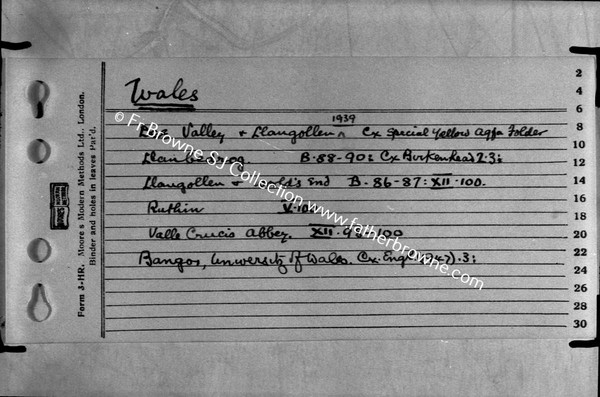 Wales
1939
Valley & Llangollen ^ Cx Special Yellow Agfa Folder
B. 88-90: Cx Birkenhead 2.3;
Llangollen & World's End B. 86-87: XII. 100.
Ruthin V. 10
Valle Crucis Abbey. XII. 100
Bangor, University of Wales. Cx. Engl. (1947). 3;
© Fr Browne SJ Collection www.fatherbrowne.com
Form 3-HR. Moore's Modern Methods Ltd., London.
Binder and holes in leaves Pat'd.
2
4
6
8
10
12
14
16
18
20
22
24
26
28
30